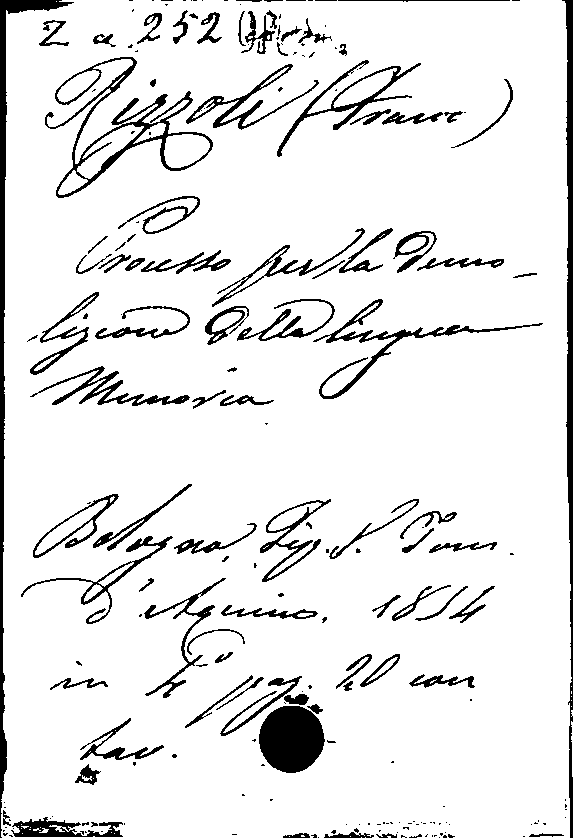 Z a 252
Rizzoli (Franc)
Processo per la demo-
lizione della lingua
Memoria
Bologna, Tip. S. Tom.
d'Aquino. 1854
in 4º pag. 20 con
tav.